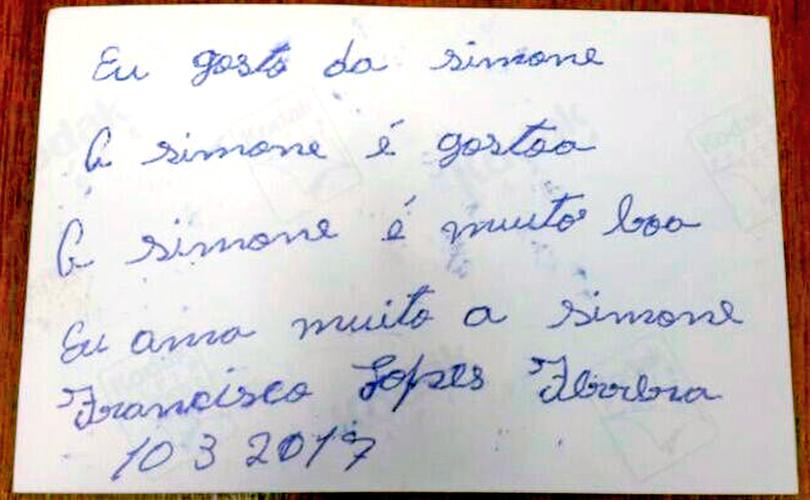 Eu gosto da simone
A simone é gostoa
A simone é muito boa
Eu amo muito a simone
Francisco Lopes
10 3 2017